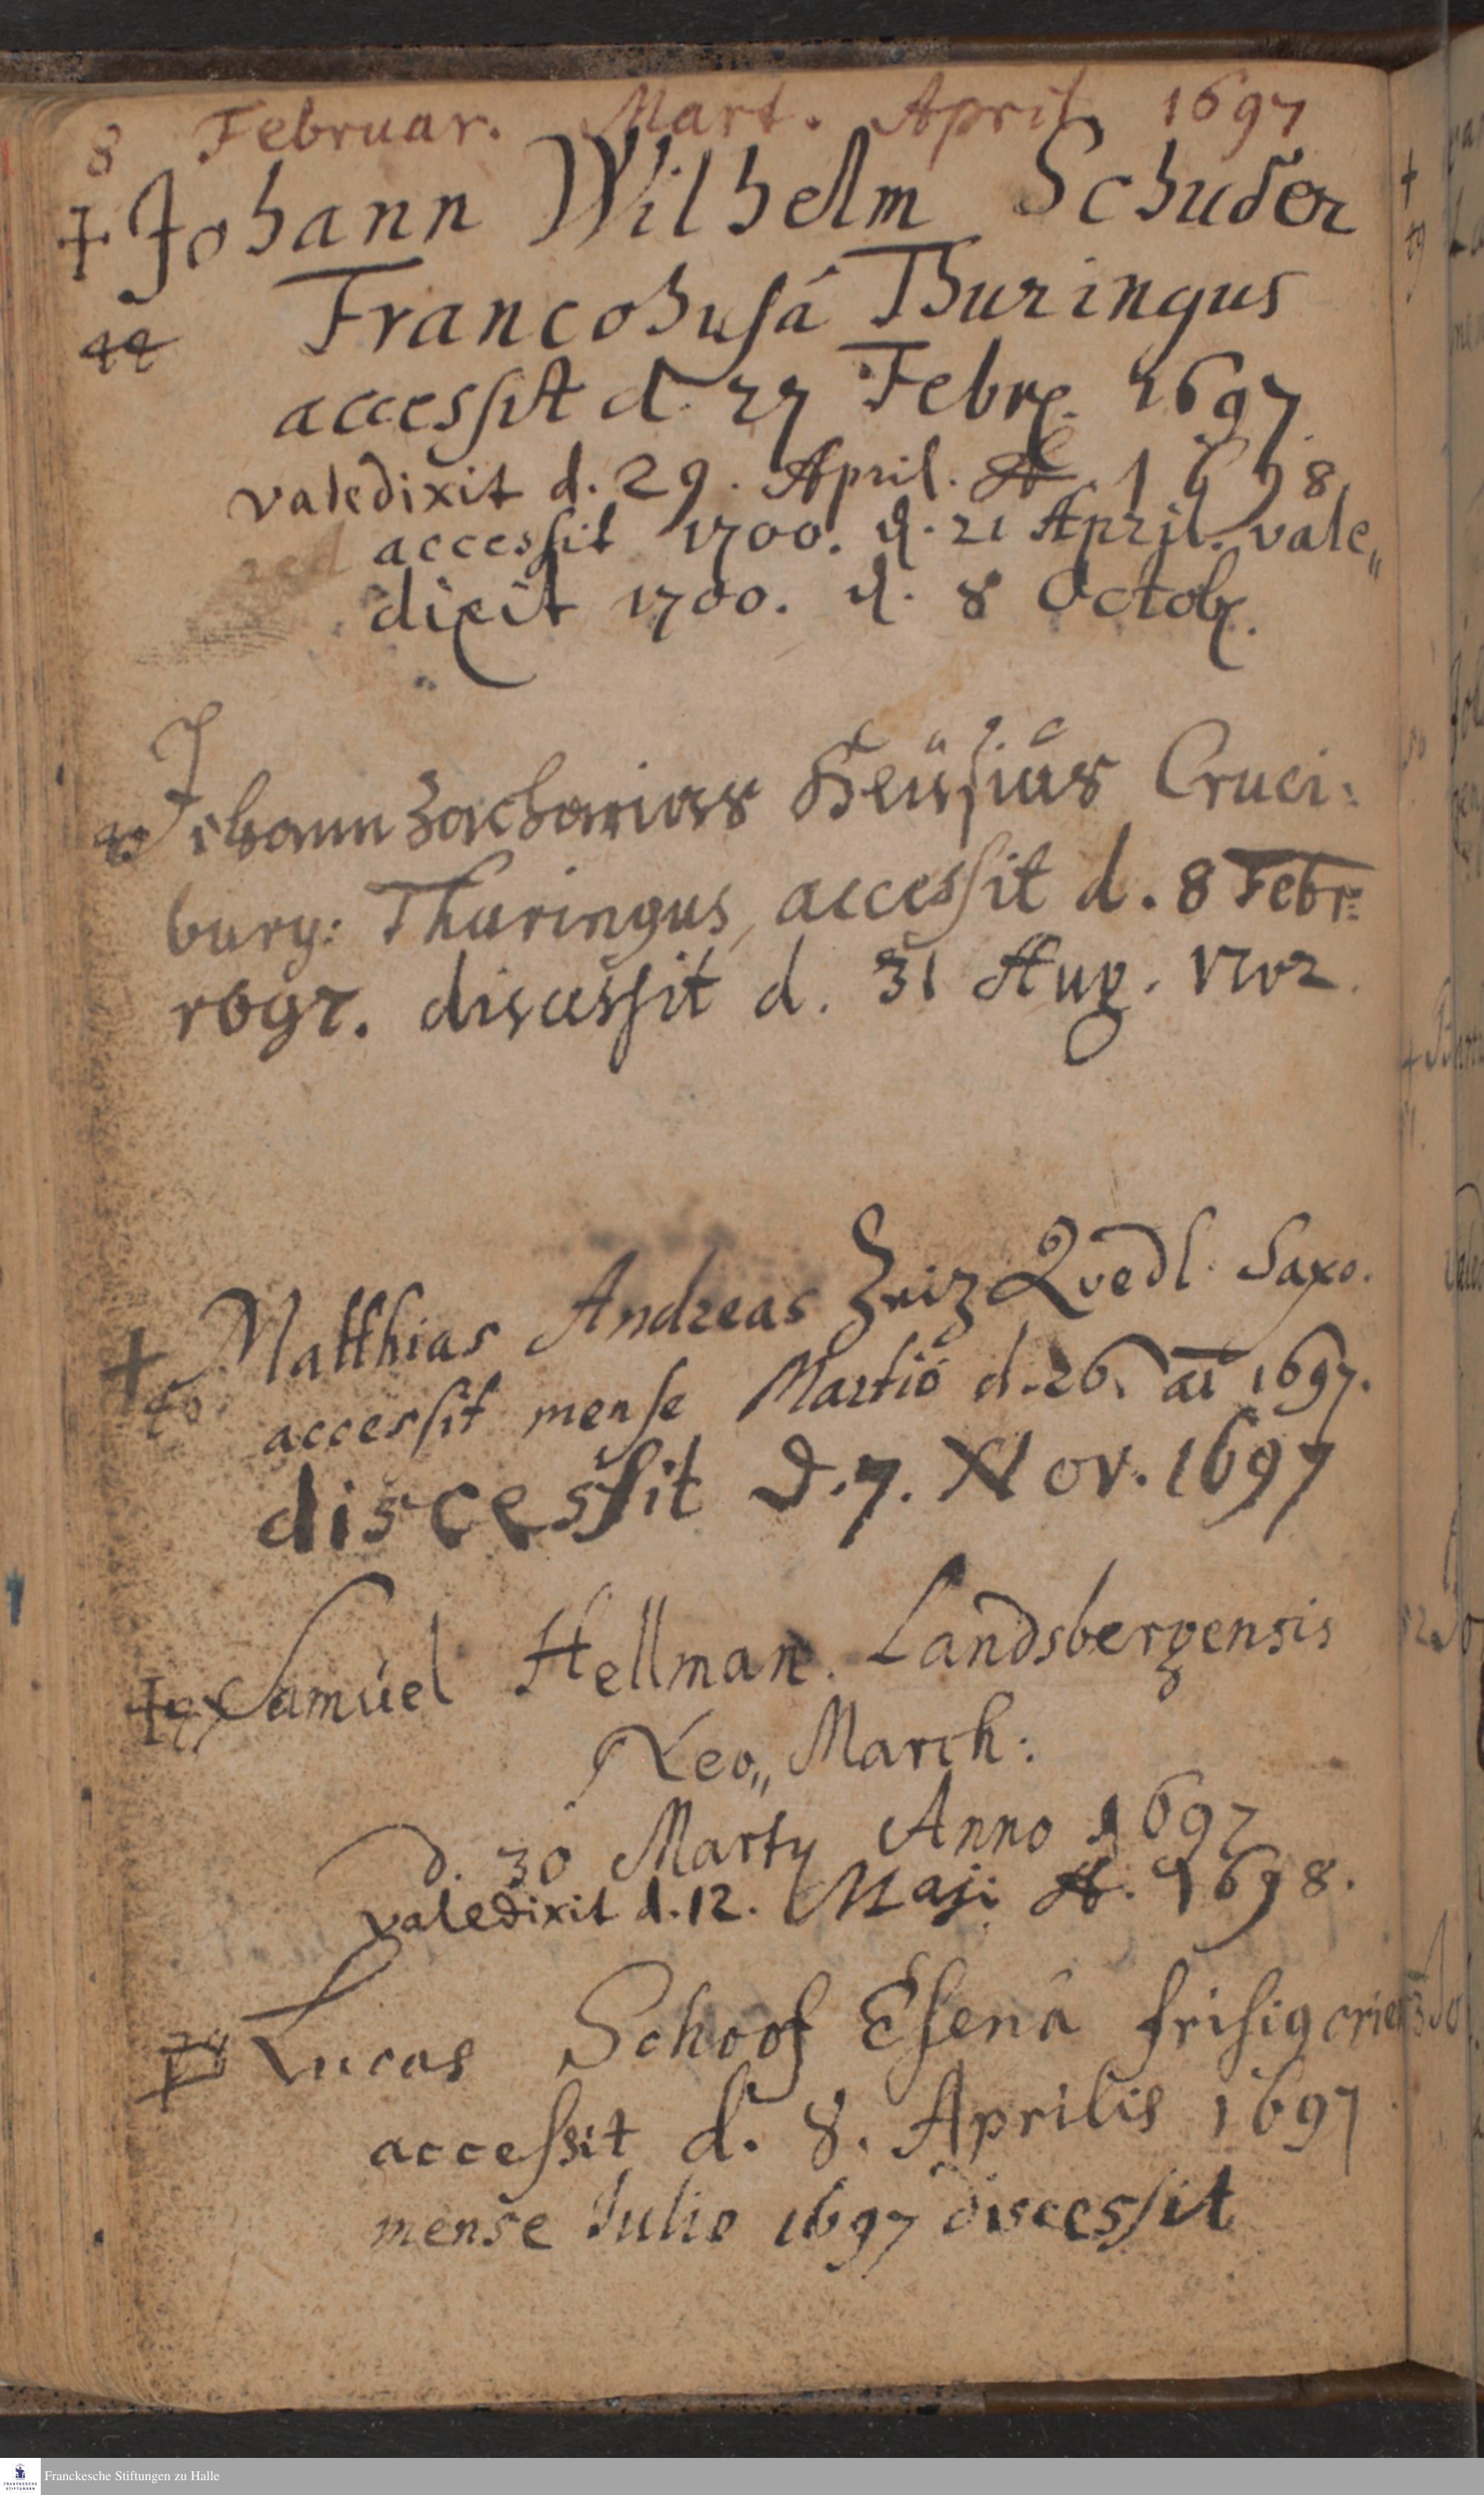 8 Februar. Mart. April. 1697
† Johann Wilhelm Schuder
44 Francohusâ Thuringus
accessit d. 27 Febr. 1697.
valedixit d. 29. April. A. 1698.
accessit 1700. d. 21 April. vale„
dicit 1700. d. 8 Octobr.
Johann Zacharias Heüsius Cruci:
burg: Thuringus, accessit d. 8 Febr:
1697. discessit d. 31 Aug. 1702.
† Matthias Andreas Zeiz Qvedl. Saxo.
accessit mense Martiô d. 26. 1697.
discessit D. 7. Nov. 1697
† 47 Samúel Hellman. Landsbergensis
Neo„ March:
d. 30 Marty Anno 1697
valedixit d. 12. Maji A. 1698.
Lucas Schoof Esenâ frisig orien
accessit d. 8. Aprilis 1697
mense Julio 1697 discessit
Franckesche Stiftungen zu Halle